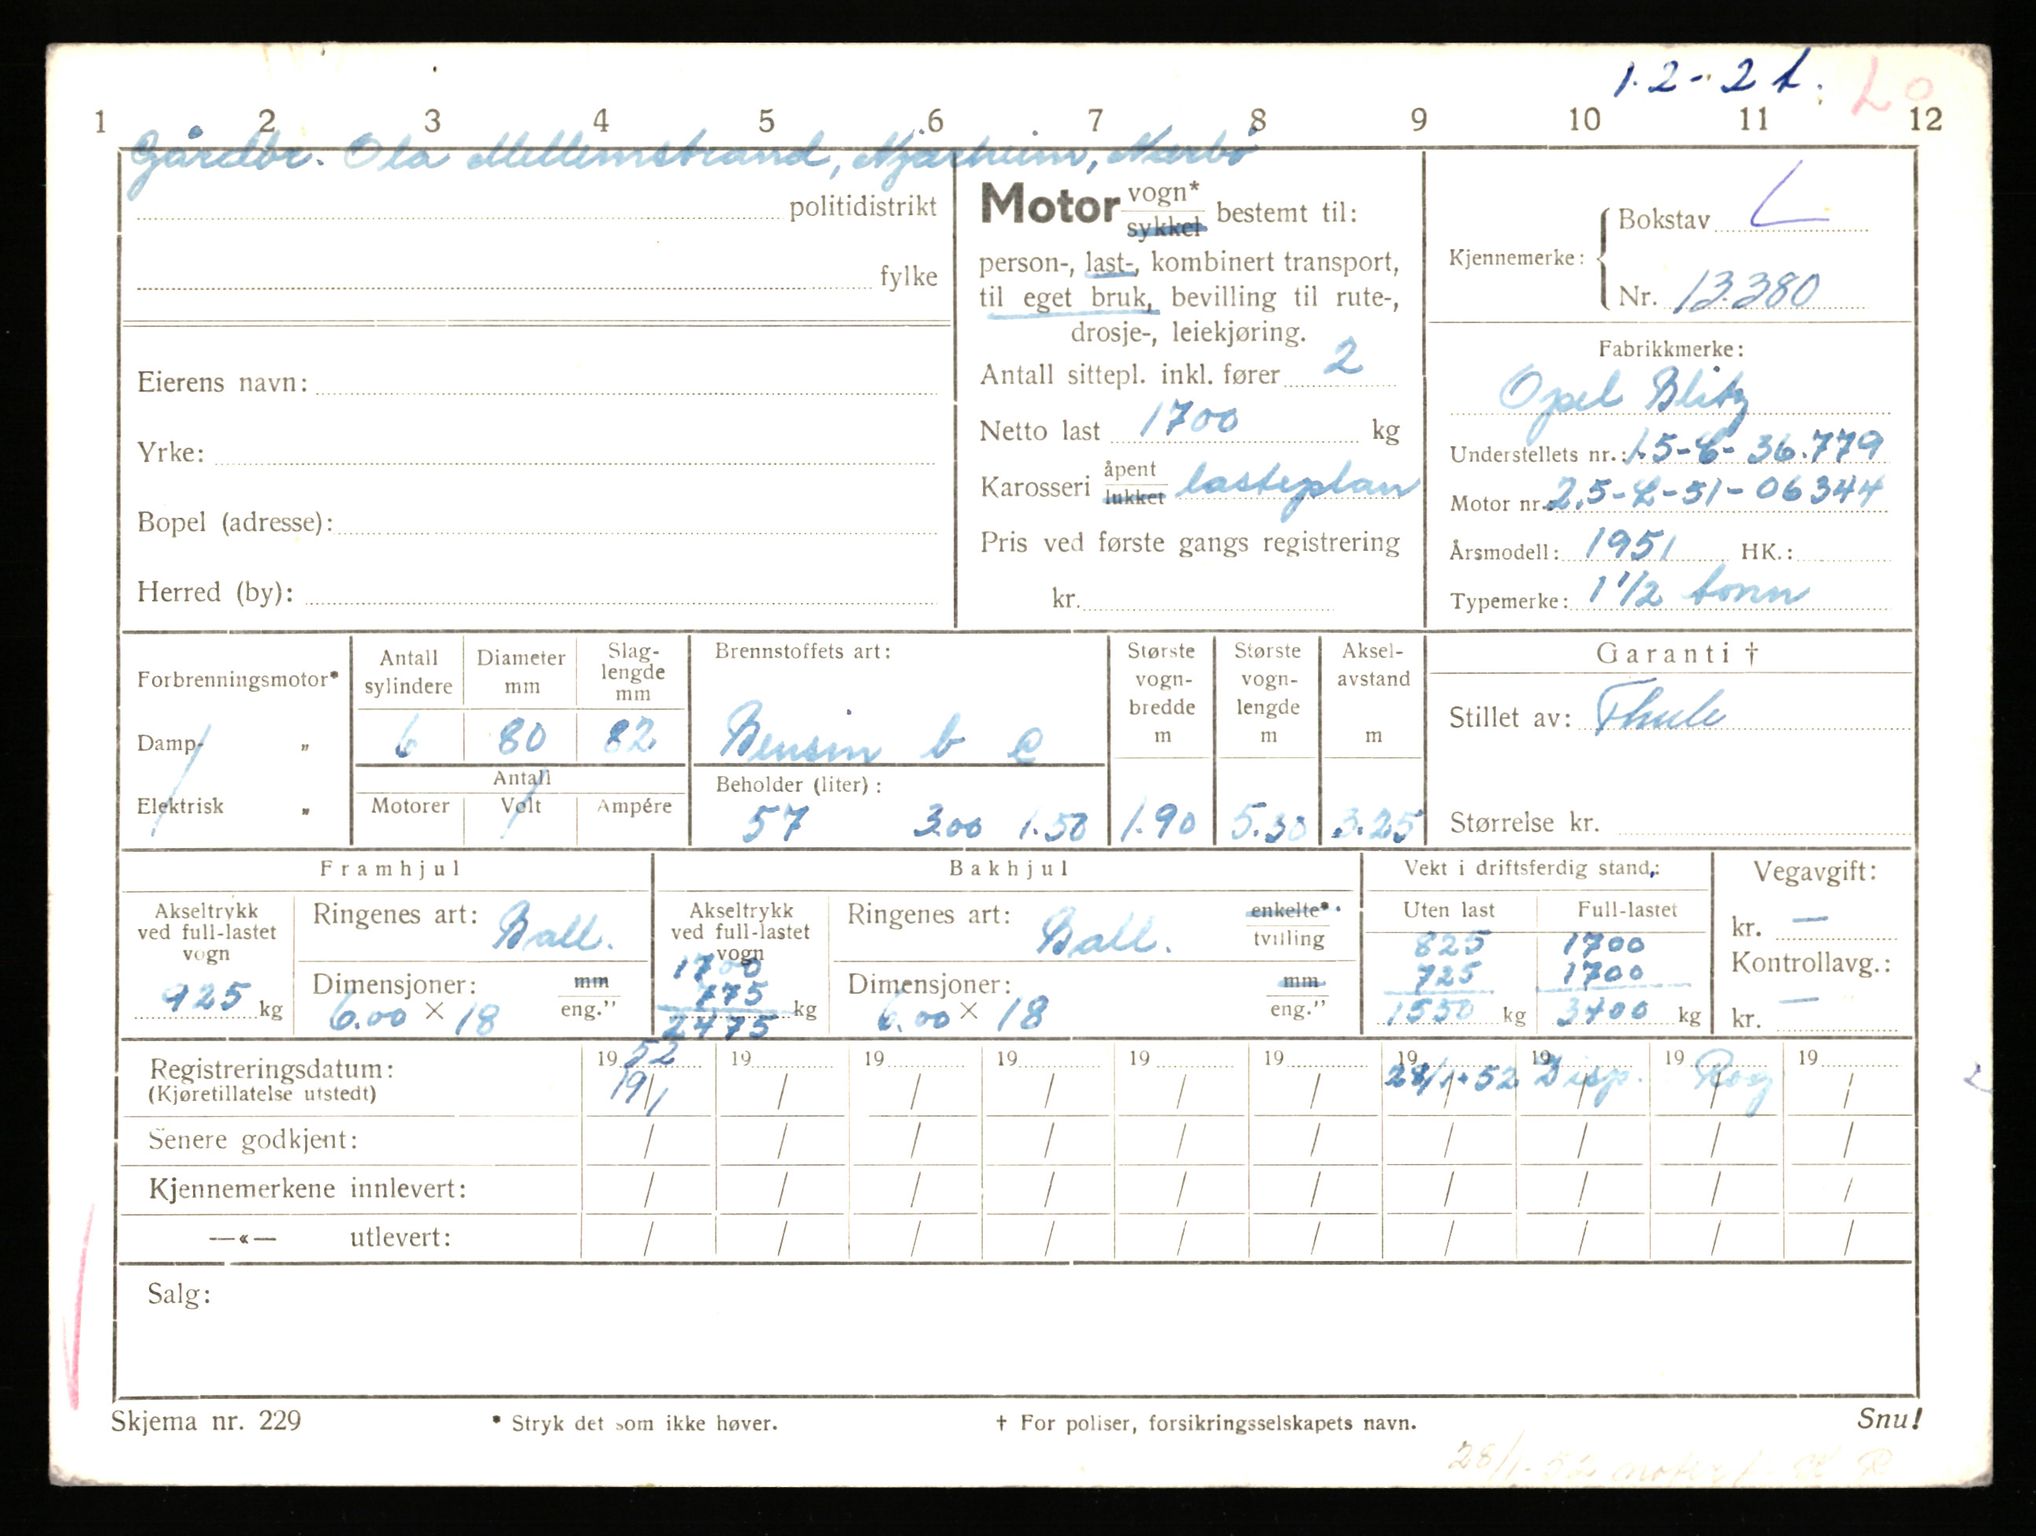 1.2-2t. Lo
1 2 3 4 5 6 7 8 9 10 11 12
Gårdbr. Ola Mellemstrand, Njærheim, Nærbø
politidistrikt
fylke
Eierens navn:
Yrke:
Bopel (adresse):
Herred (by):
Motor vogn* sykkel bestemt til:
person-, last-, kombinert transport,
til eget bruk, bevilling til rute-,
drosje-, leiekjøring.
Antall sittepl. inkl. fører 2
Netto last 1700 kg
Karosseri åpent lukket lasteplan
Pris ved første gangs registrering
kr.
Kjennemerke: Bokstav L
Nr. 13.380
Fabrikkmerke:
Opel Blitz
Understellets nr.: 1.5-L-36.779
Motor nr. 2.5-L-51-06344
Årsmodell: 1951 HK.:
Typemerke: 1 1/2 tonn
Forbrenningsmotor*
Damp- „
Elektrisk „
Antall sylindere
6
Diameter mm
80
Slaglengde mm
82
Antall
Motorer Volt Ampére
Brennstoffets art:
Bensin b c
Beholder (liter):
57 3.00 1.50
Største vogn-bredde m
1.90
Største vogn-lengde m
5.30
Aksel-avstand m
3.25
Garanti †
Stillet av: Thule
Størrelse kr.
Framhjul
Akseltrykk
ved full-lastet
vogn
925 kg
Ringenes art: Ball.
Dimensjoner: mm eng."
6.00 × 18
Bakhjul
Akseltrykk
ved full-lastet
vogn
1700
775
2475 kg
Ringenes art: Ball. enkelte* tvilling
Dimensjoner: mm eng."
6.00 × 18
Vekt i driftsferdig stand:
Uten last Full-lastet
825 1700
725 1700
1550 kg 3400 kg
Vegavgift:
kr. —
Kontrollavg.:
kr. —
Registreringsdatum: 1952 19 19 19 19 19 19 19 19 19
(Kjøretillatelse utstedt) 19/1 / / / / / 28/1-52 Disp. Rog /
Senere godkjent: / / / / / / / / / /
Kjennemerkene innlevert: / / / / / / / / / /
—«— utlevert: / / / / / / / / / /
Salg:
Skjema nr. 229 * Stryk det som ikke høver. † For poliser, forsikringsselskapets navn. Snu!
28/1-52